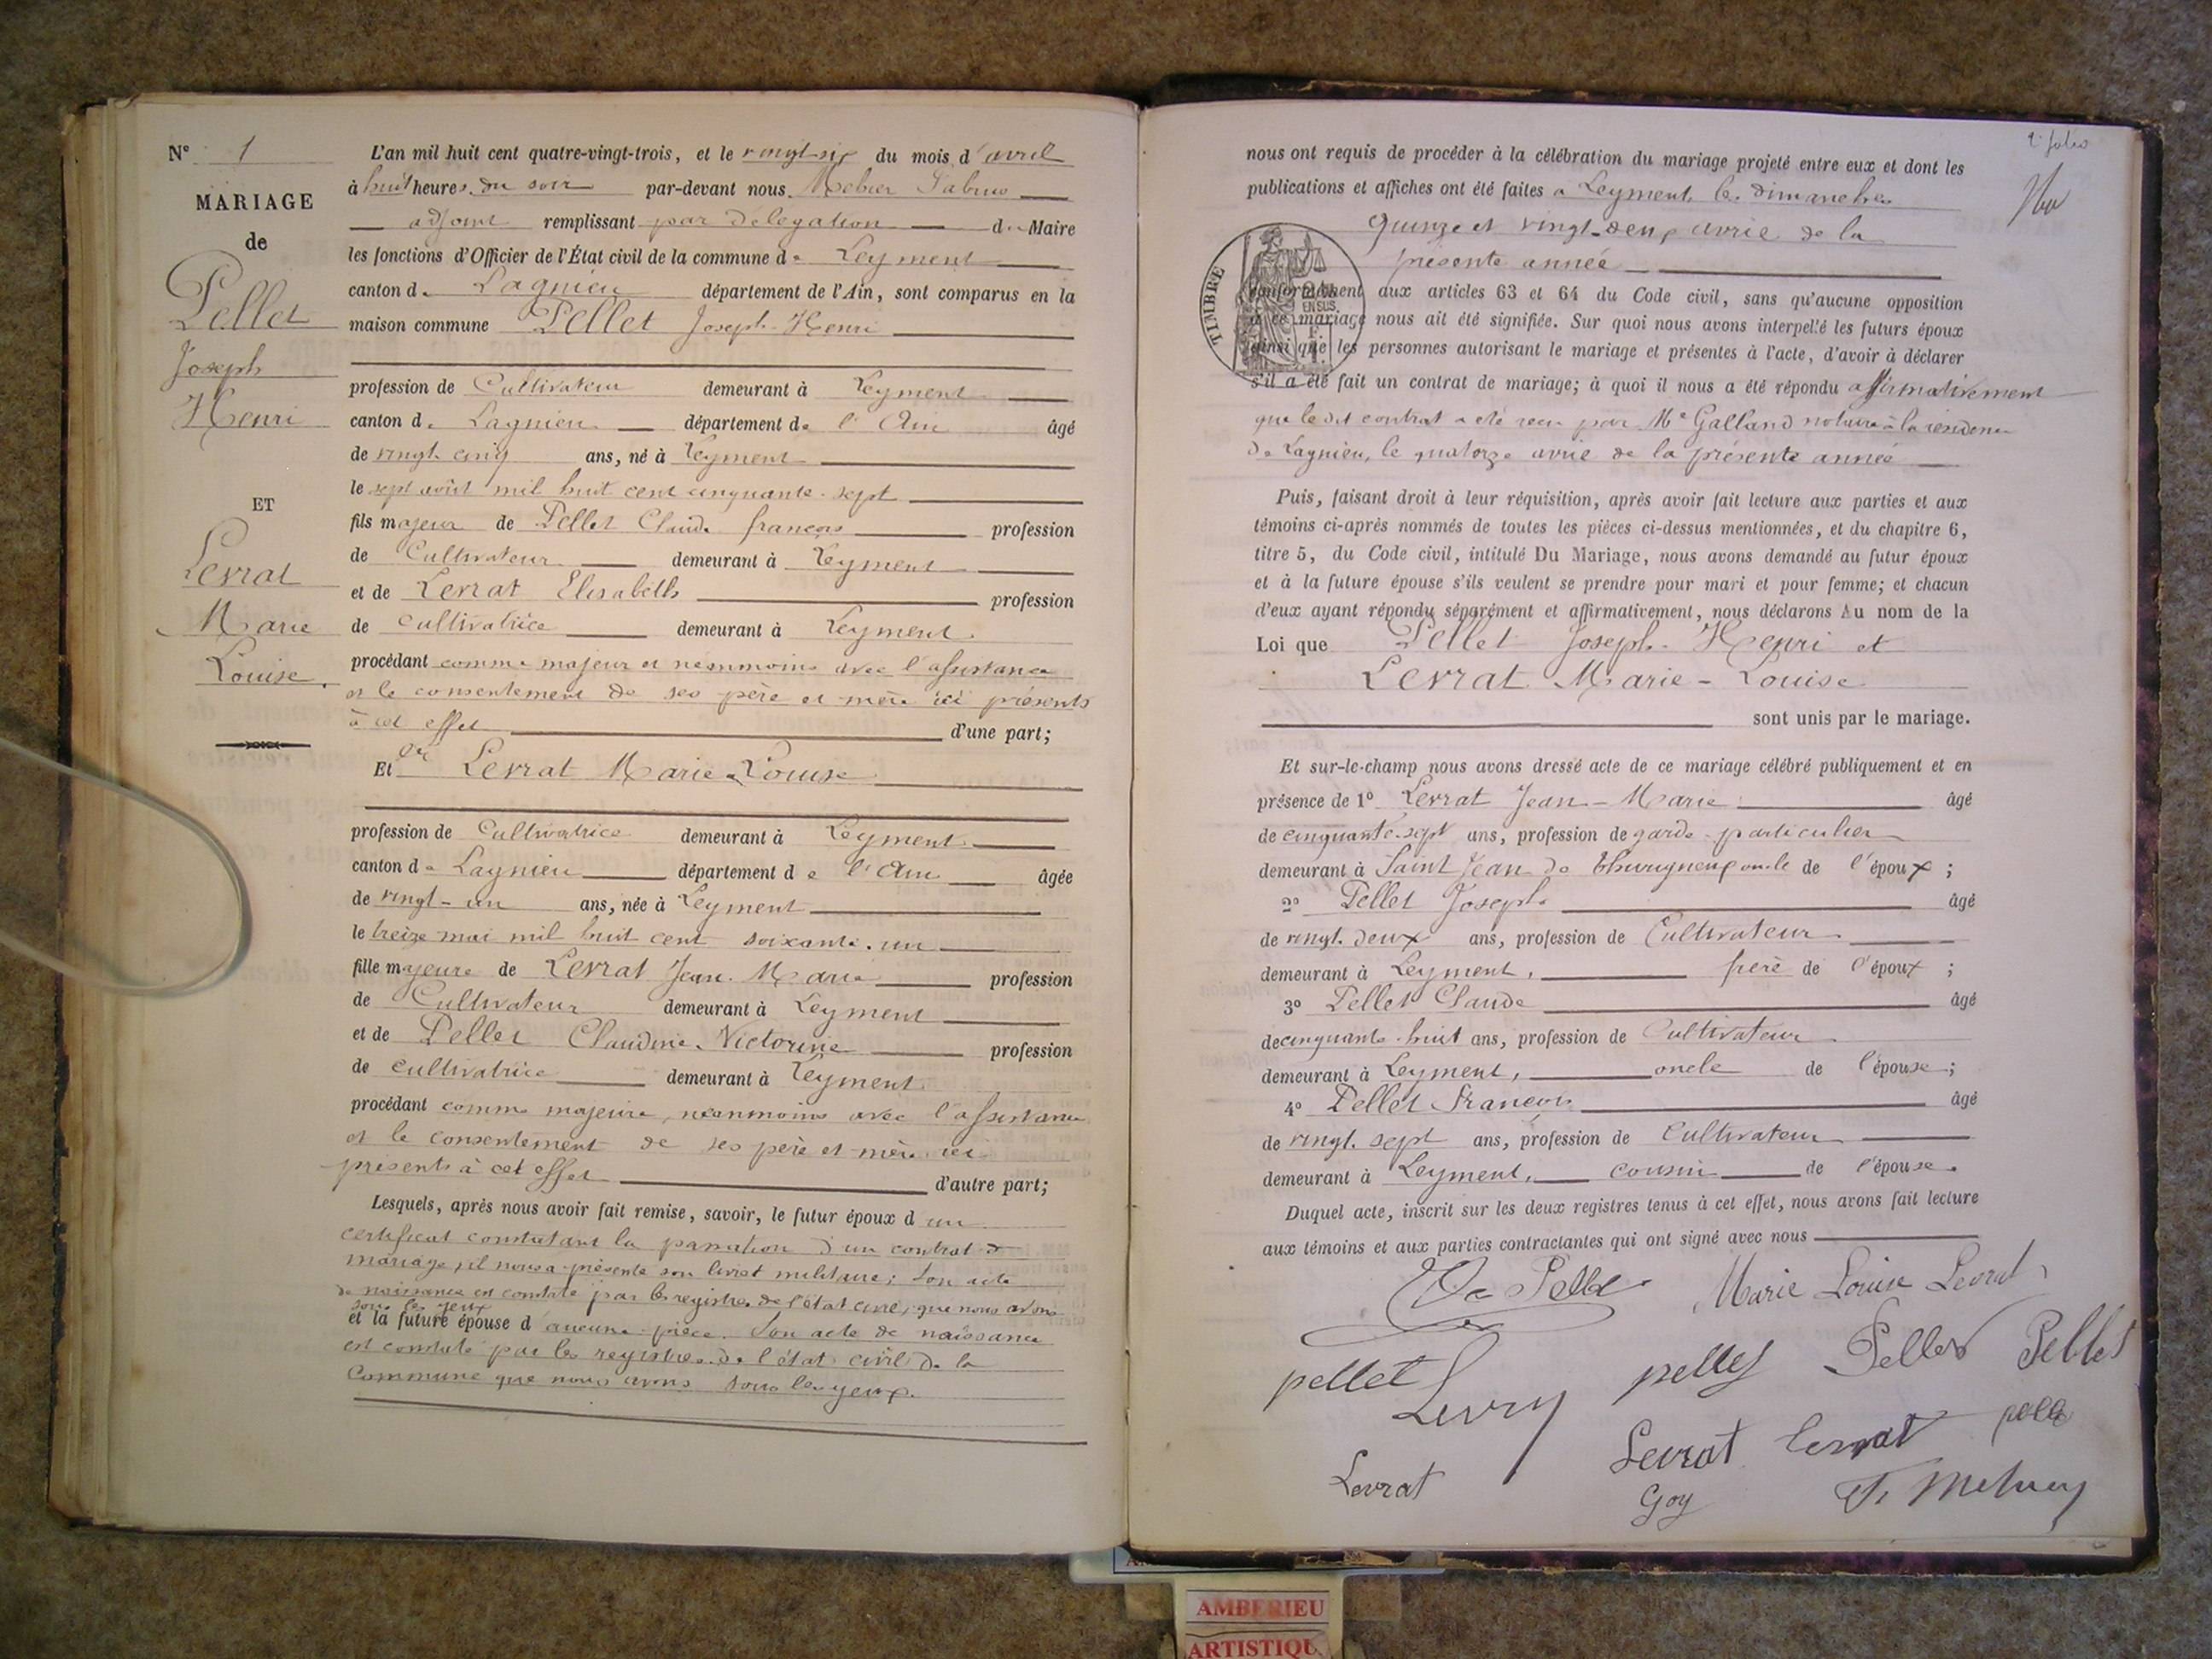 N° 1
MARIAGE
de
Pellet
Joseph
Henri
ET
Levrat
Marie
Louise.
L'an mil huit cent quatre-vingt-trois, et le vingt-six du mois d'avril
à huit heures du soir par-devant nous
adjoint remplissant par délégation d. Maire
les fonctions d'Officier de l'État civil de la commune de Leyment
canton de Lagnieu département de l'Ain, sont comparus en la
maison commune Pellet Joseph-Henri
profession de Cultivateur demeurant à Leyment
canton de Lagnieu département de l'Ain âgé
de vingt-cinq ans, né à Leyment
le sept août mil huit cent cinquante-sept
fils majeur de Pellet Claude françois profession
de Cultivateur demeurant à Leyment
et de Levrat Elisabeth profession
de cultivatrice demeurant à Leyment
procédant comme majeur et néanmoins avec l'assistance
et le consentement de ses père et mère ici présents
à cet effet d'une part;
Et Levrat Marie-Louise
profession de Cultivatrice demeurant à Leyment
canton de Lagnieu département de l'Ain âgée
de vingt-un ans, née à Leyment
le treize mai mil huit cent soixante-un
fille majeure de Levrat Jean-Marie profession
de Cultivateur demeurant à Leyment
et de Pellet Claudine Victorine profession
de cultivatrice demeurant à Leyment
procédant comme majeure, néanmoins avec l'assistance
et le consentement de ses père et mère ici
présents à cet effet d'autre part;
Lesquels, après nous avoir fait remise, savoir, le futur époux d'un
certificat constatant la passation d'un contrat de
mariage, il nous a présenté son livret militaire; son acte
de naissance est constaté par les registres de l'état civil, que nous avons
sous les yeux
et la future épouse d'aucune pièce. Son acte de naissance
est constaté par les registres de l'état civil de la
Commune que nous avons sous les yeux.
2e folio
nous ont requis de procéder à la célébration du mariage projeté entre eux et dont les
publications et affiches ont été faites à Leyment, les dimanches
quinze et vingt-deux avril de la
présente année
TIMBRE
conformément aux articles 63 et 64 du Code civil, sans qu'aucune opposition
à ce mariage nous ait été signifiée. Sur quoi nous avons interpellé les futurs époux
ainsi que les personnes autorisant le mariage et présentes à l'acte, d'avoir à déclarer
s'il a été fait un contrat de mariage; à quoi il nous a été répondu affirmativement
que le dit contrat a été reçu par Me Galland notaire à la résidence
de Lagnieu, le quatorze avril de la présente année
Puis, faisant droit à leur réquisition, après avoir fait lecture aux parties et aux
témoins ci-après nommés de toutes les pièces ci-dessus mentionnées, et du chapitre 6,
titre 5, du Code civil, intitulé Du Mariage, nous avons demandé au futur époux
et à la future épouse s'ils veulent se prendre pour mari et pour femme; et chacun
d'eux ayant répondu séparément et affirmativement, nous déclarons Au nom de la
Loi que Pellet Joseph-Henri et
Levrat Marie-Louise
sont unis par le mariage.
Et sur-le-champ nous avons dressé acte de ce mariage célébré publiquement et en
présence de 1° Levrat Jean-Marie âgé
de cinquante-sept ans, profession de garde-particulier
demeurant à Saint Jean de Thurigneux oncle de l'époux;
2° Pellet Joseph âgé
de vingt-deux ans, profession de Cultivateur
demeurant à Leyment, frère de l'époux;
3° Pellet Claude âgé
de cinquante-huit ans, profession de Cultivateur
demeurant à Leyment, oncle de l'épouse;
4° Pellet François âgé
de vingt-sept ans, profession de Cultivateur
demeurant à Leyment, cousin de l'épouse.
Duquel acte, inscrit sur les deux registres tenus à cet effet, nous avons fait lecture
aux témoins et aux parties contractantes qui ont signé avec nous
Marie Louise Levrat
pellet Pellet Pellet
Levrat Levrat
Levrat Goy
AMBERIEU
ARTISTIQU